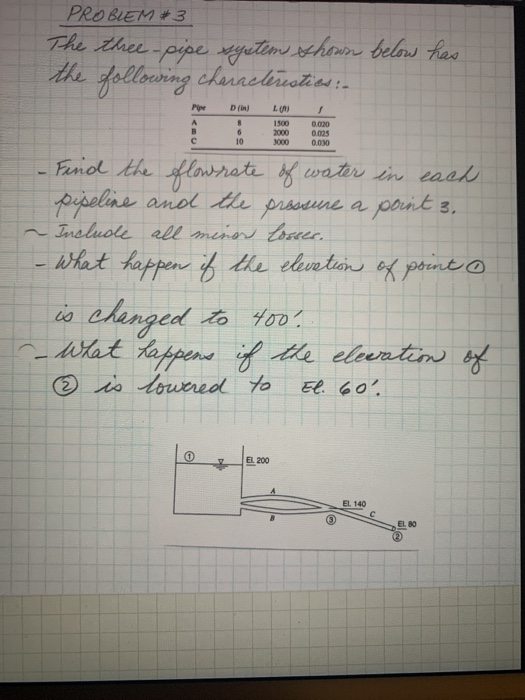 PROBLEM #3
The three-pipe system shown below has
the following characteristics:-
Pipe D (in) L (ft) f
A 8 1500 0.020
B 6 2000 0.025
C 10 3000 0.030
- Find the flowrate of water in each
pipeline and the pressure a point 3.
- Include all minor losses.
- What happen if the elevation of point ①
is changed to 400'.
- What happens if the elevation of
② is lowered to El. 60'.
①
El. 200
A
El. 140
B
③
C
El. 80
②